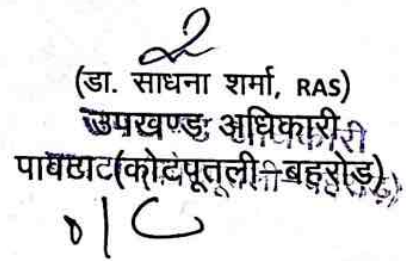 (डा. साधना शर्मा, RAS)
उपखण्ड अधिकारी
पावटा(कोटपूतली-बहरोड़)